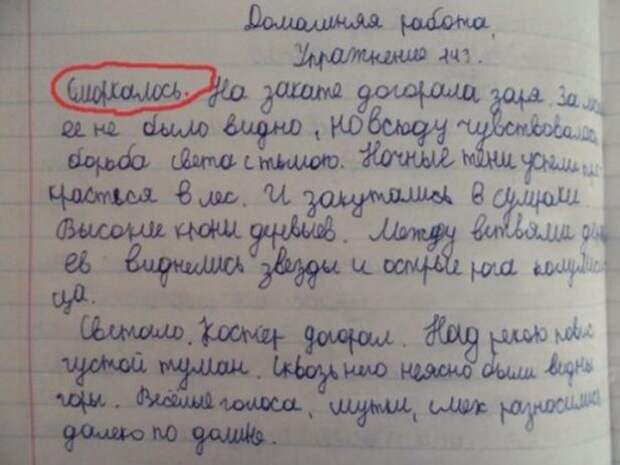 Домашняя работа.
Упражнение 143.
Сморкалось. На закате догорала заря. За
ее не было видно, но всюду чувствовалась
борьба света с тьмою. Ночные тени успели про-
красться в лес. И закутались в сумраки.
Высокие крони деревьев. Между ветвями дерев
ев виднелись звезды и острые рога
ца.
Светало. Костер догорал. Над рекою повис
густой туман. Сквозь него неясно были видны
горы. Весёлые голоса, шутки, смех разносились
далеко по долине.